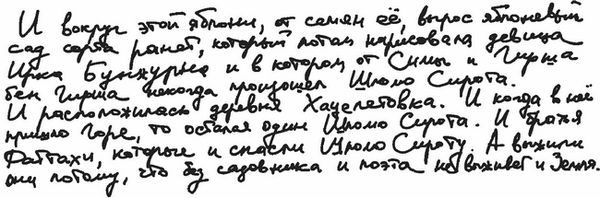 И вокруг этой яблони, от семян её, вырос яблоневый
сад сорта ранет, который потом нарисовала девица
Ирка Бунжурна и в котором от Симы и Гирша
бен Гирша некогда произошел Шломо Сирота.
И расположилась деревня Хацепетовка. И когда в неё
пришло горе, то остался один Шломо Сирота. И братья
Фаттахи, которые и спасли Шломо Сироту. А выжили
они потому, что без садовника и поэта не выживет и Земля.